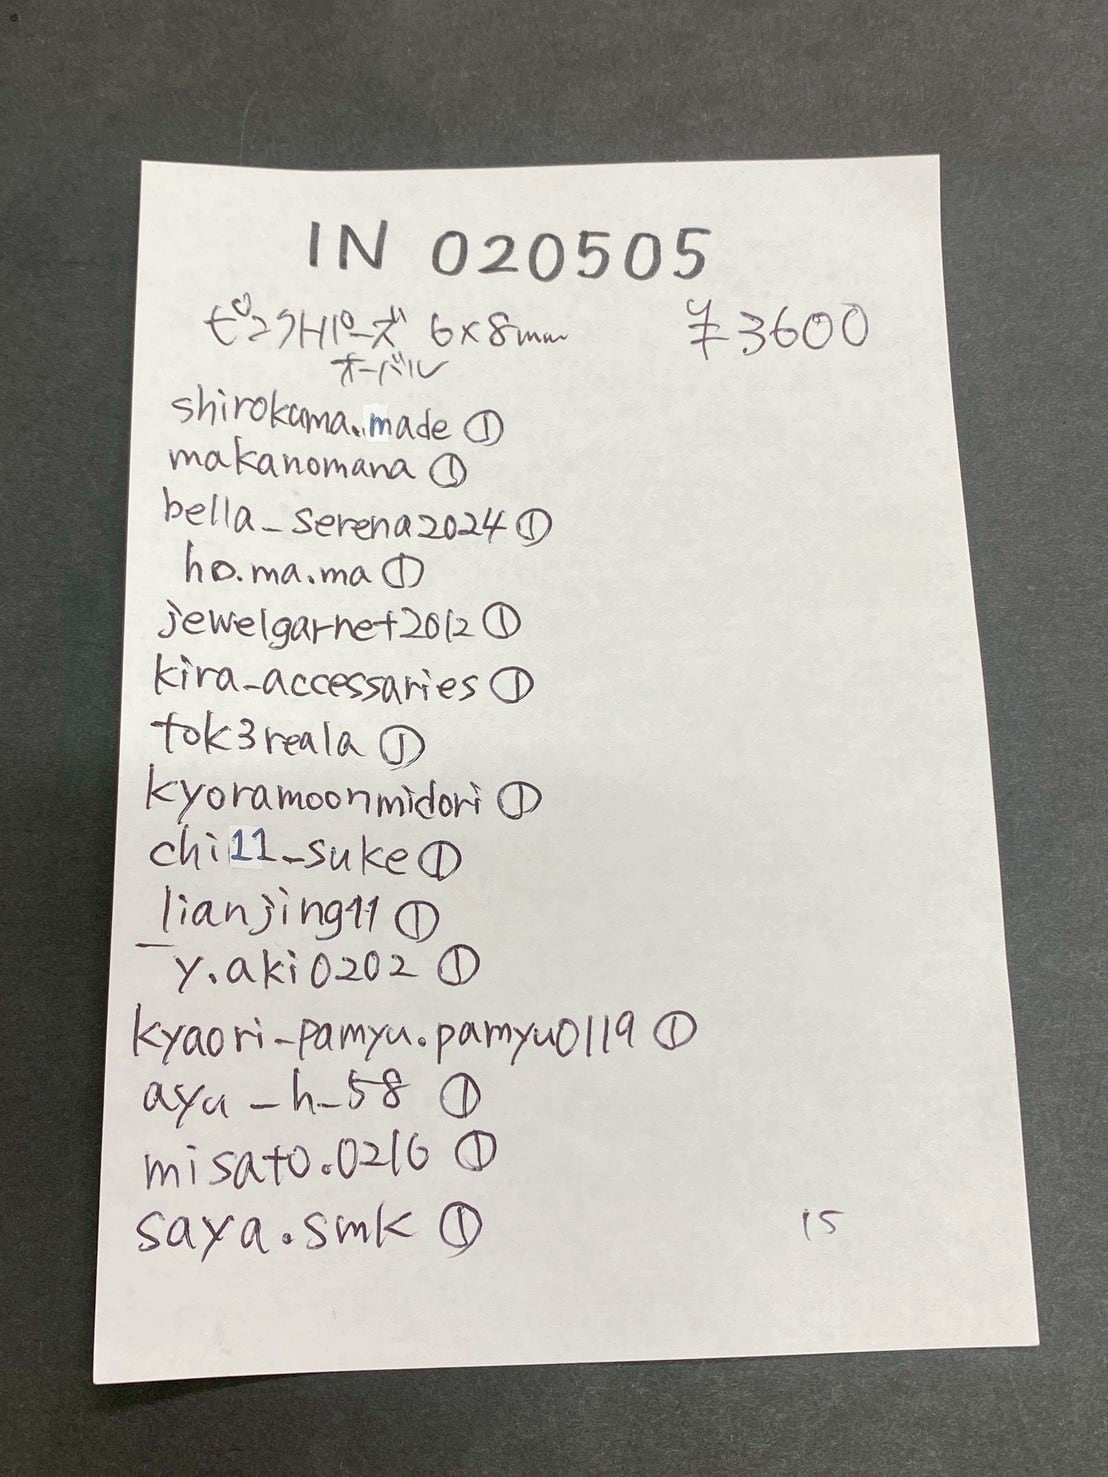 IN 020505
ピンクHパーズ 6×8mm ¥3600
オーバル
shirokuma.made ①
makanomana ①
bella_serena2024 ①
ho.ma.ma ①
jewelgarnet2012 ①
kira_accessaries ①
tok3reala ①
kyoramoonmidori ①
chi11_suke ①
lianjing11 ①
_y.aki0202 ①
kyaori_pamyu.pamyu0119 ①
ayu_h_58 ①
misato.0216 ①
saya.smk ①
15